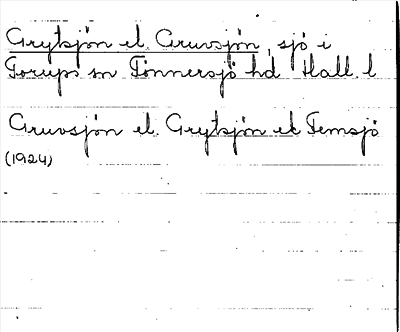 Grytsjön el. Gruvsjön, sjö i
Torups sn Tönnersjö hd Hall. l
Gruvsjön el. Grytsjön el Femsjö
(1924)